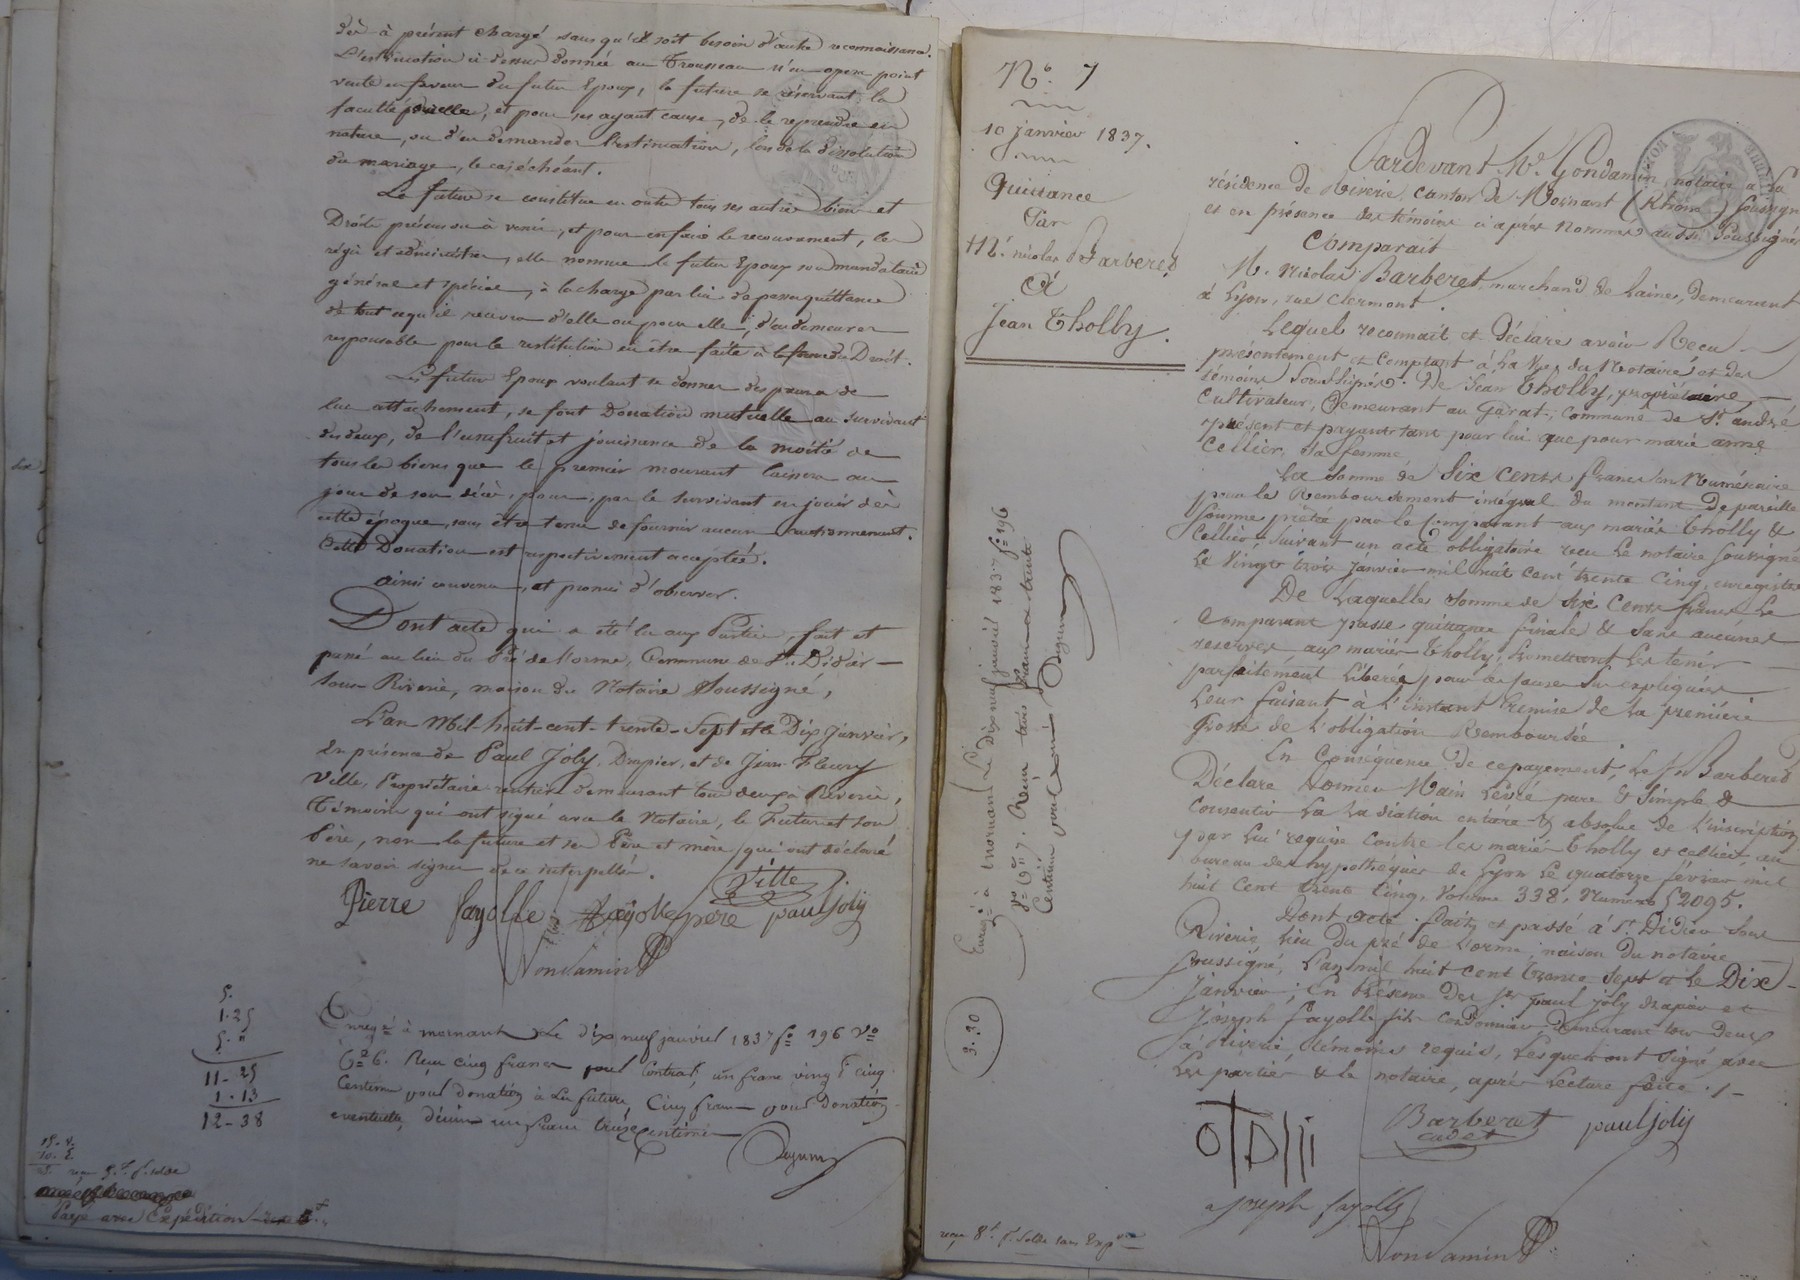 dès à présent chargé sans qu'il soit besoin d'autre reconnaissance.
L'estimation ci dessus donnée au Trousseau n'en opere point
vente en faveur du futur Epoux, la future se réservant la
faculté pour elle, et pour ses ayant cause, de le reprendre en
nature, ou d'en demander l'estimation, lors de la dissolution
du mariage, le cas échéant.
La future se constitue en outre tous ses autres biens et
Droits présens ou à venir, et pour en faire le recouvrement, les
régir et administrer, elle nomme le futur Epoux son mandataire
général et spécial, à la charge par lui de passer quittance
de tout ce qu'il recevra d'elle ou pour elle, d'en demeurer
responsable pour la restitution en être faite à la forme du Droit.
Les futurs Epoux voulant se donner des preuves de
leur attachement, se font Donation mutuelle au survivant
des deux, de l'usufruit et jouissance de la moitié de
tous les biens que le premier mourant laissera au
jour de son décès, pour, par le survivant en jouir dès
cette époque, sans être tenu de fournir aucun cautionnement.
Cette Donation est respectivement acceptée.
ainsi convenu, et promis d'observer.
Dont acte qui a été lu aux Parties, fait et
passé au lieu du Pré de Lorme, Commune de St. Didier
sous Riverie, maison du Notaire soussigné,
L'an Mil-huit-cent-trente-Sept et le Dix Janvier,
En présence de Paul Joly, Drapier, et de Jean Fleury
Ville, Propriétaire rentier demeurant tous deux à Riverie,
Témoins qui ont signé avec le Notaire, le Futur et son
Père, non la future et ses Père et mère, qui ont déclaré
ne savoir signer de ce interpellés.
Ville
Pierre fayolle fayolle père paul joly
Gondamin
5.
1.25
5. "
11-25
1.13
12-38
Enreg.é à mornant Le dix neuf janvier 1837 f.o 196 V.o
C.e 6. Reçu cinq francs pour Contrat, un franc vingt cinq
Centimes pour donation à la future, Cinq francs pour donation
eventuelle, décime un franc treize centimes
Payé avec Expédition
N.o 7
10 janvier 1837.
Quittance
Par
M.r nicolas Barberet
à
Jean Tholly.
Enreg.é à mornant Le Dix neuf janvier 1837 f.o 196
V.o C.e 7. Reçu trois francs trente
Centimes
3.30
Pardevant M.e Gondamin, notaire à La
résidence de Riverie, canton de Mornant (Rhône) soussigné
et en présence des témoins ci après nommés aussi soussignés
Comparait
M. Nicolas Barberet, marchand de Laines, demeurant
à Lyon, rue Clermont.
Lequel reconnait et déclare avoir Recu
présentement et comptant à La Vue du Notaire et des
témoins soussignés. De Jean Tholly, propriétaire,
cultivateur, demeurant au Garat, commune de St. andré
présent et payant tant pour lui que pour marie anne
Cellier, sa femme,
La somme de Six cents francs en Numéraire
pour le Remboursement intégral du montant De pareille
somme prêtée par le Comparant aux mariés Tholly &
Cellier, suivant un acte obligatoire reçu Le notaire soussigné
Le Vingt trois janvier mil huit cent trente cinq, enregistré
De Laquelle somme de Six Cents francs Le
Comparant passe quittance finale & sans aucunes
reserves aux mariés Tholly, Promettant Les tenir
parfaitement Libérés pour les causes sus expliquées
Leur faisant à L'instant Remise de La première
Grosse de L'obligation Remboursée.
En Conséquence de ce payement, Le Sr Barberet
Déclare Donner Main Levée pure & Simple &
Consentir La Radiation entière & absolue de L'inscription
par Lui requise contre les mariés Tholly et Cellier, au
bureau des hypothèques de Lyon Le quatorze février mil
huit cent trente cinq, Volume 338, Numéro 52095.
Dont acte. fait et passé à St. Didier sous
Riverie, Lieu du pré de Lorme, maison du notaire
soussigné, L'an mil huit cent trente sept et Le Dix
Janvier; En Présence Des Srs paul joly drapier et
Joseph fayolle fils cordonnier, demeurant tous Deux
à Riverie témoins requis, Lesquels ont signé avec
Les parties & le notaire, après Lecture faite.
Barberet
cadet
paul joly
joseph fayolle
Gondamin